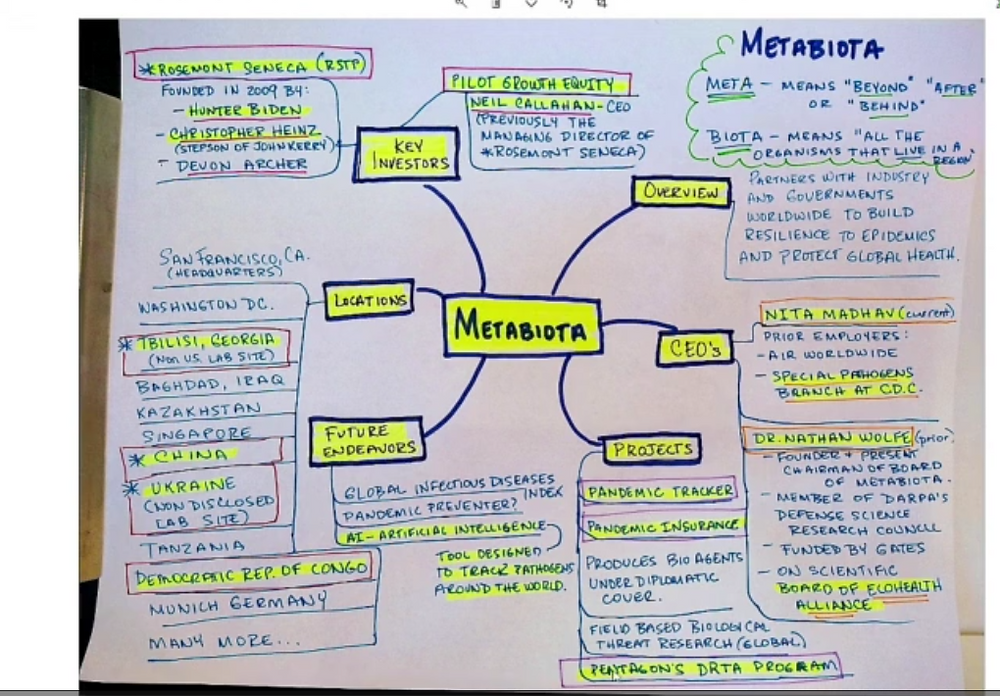 METABIOTA
META - MEANS "BEYOND" "AFTER"
OR "BEHIND"
BIOTA - MEANS "ALL THE
ORGANISMS THAT LIVE IN A
REGION"
*ROSEMONT SENECA (RSTP)
FOUNDED IN 2009 BY:
- HUNTER BIDEN
- CHRISTOPHER HEINZ
(STEPSON OF JOHN KERRY)
- DEVON ARCHER
PILOT GROWTH EQUITY
NEIL CALLAHAN - CEO
(PREVIOUSLY THE
MANAGING DIRECTOR OF
*ROSEMONT SENECA)
KEY
INVESTORS
OVERVIEW
PARTNERS WITH INDUSTRY
AND GOVERNMENTS
WORLDWIDE TO BUILD
RESILIENCE TO EPIDEMICS
AND PROTECT GLOBAL HEALTH.
METABIOTA
LOCATIONS
SAN FRANCISCO, CA.
(HEADQUARTERS)
WASHINGTON DC.
*TBILISI, GEORGIA
(NON U.S. LAB SITE)
BAGHDAD, IRAQ
KAZAKHSTAN
SINGAPORE
*CHINA
*UKRAINE
(NON DISCLOSED
LAB SITE)
TANZANIA
DEMOCRATIC REP. OF CONGO
MUNICH GERMANY
MANY MORE...
CEO's
NITA MADHAV (current)
PRIOR EMPLOYERS:
- AIR WORLDWIDE
- SPECIAL PATHOGENS
BRANCH AT C.D.C.
DR. NATHAN WOLFE (prior)
- FOUNDER + PRESENT
CHAIRMAN OF BOARD
OF METABIOTA.
- MEMBER OF DARPA'S
DEFENSE SCIENCE
RESEARCH COUNCIL
- FUNDED BY GATES
- ON SCIENTIFIC
BOARD OF ECOHEALTH
ALLIANCE
FUTURE
ENDEAVORS
GLOBAL INFECTIOUS DISEASES
INDEX
PANDEMIC PREVENTER?
AI - ARTIFICIAL INTELLIGENCE
TOOL DESIGNED
TO TRACK PATHOGENS
AROUND THE WORLD.
PROJECTS
PANDEMIC TRACKER
PANDEMIC INSURANCE
PRODUCES BIO AGENTS
UNDER DIPLOMATIC
COVER.
FIELD BASED BIOLOGICAL
THREAT RESEARCH (GLOBAL)
PENTAGON'S DRTA PROGRAM